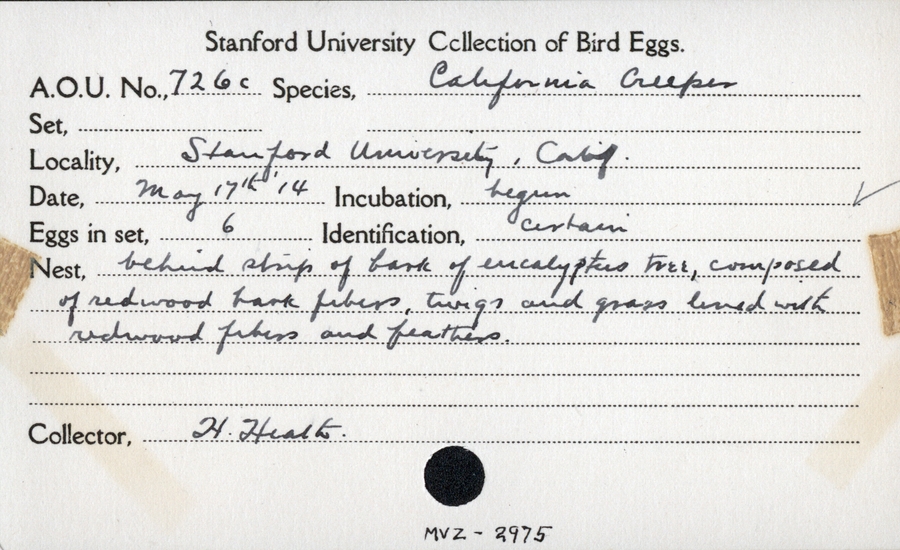 Stanford University Ccllection of Bird Eggs.
A.O.U. No., 726c Species, California Creeper
Set,
Locality, Stanford University, Calif.
Date, May 17th '14 Incubation, begun
Eggs in set, 6 Identification, certain
Nest, behind strip of bark of eucalyptus tree, composed
of redwood bark fibers, twigs and grass lined with
redwood fibers and feathers.
Collector, H. Heath.
MVZ - 2975